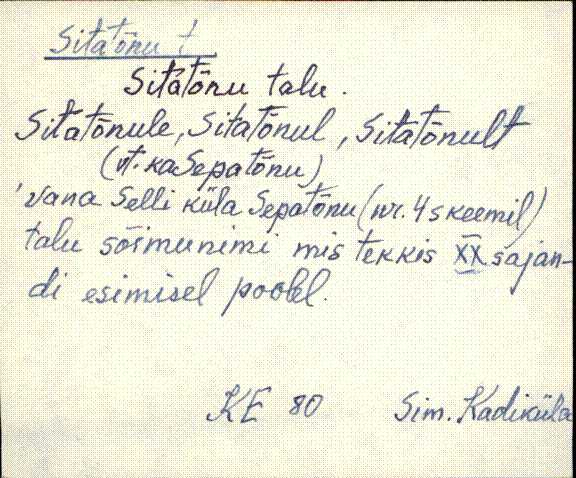 Sitatõnu t.
Sitatõnu talu.
Sitatõnule, Sitatõnul, Sitatõnult
(vt. ka Sepatõnu)
Vana Selli küla Sepatõnu (nr. 4 skeemil)
talu sõimunimi mis tekkis XX sajan-
di esimisel poolel.
KE 80 Sim. Kadiküla